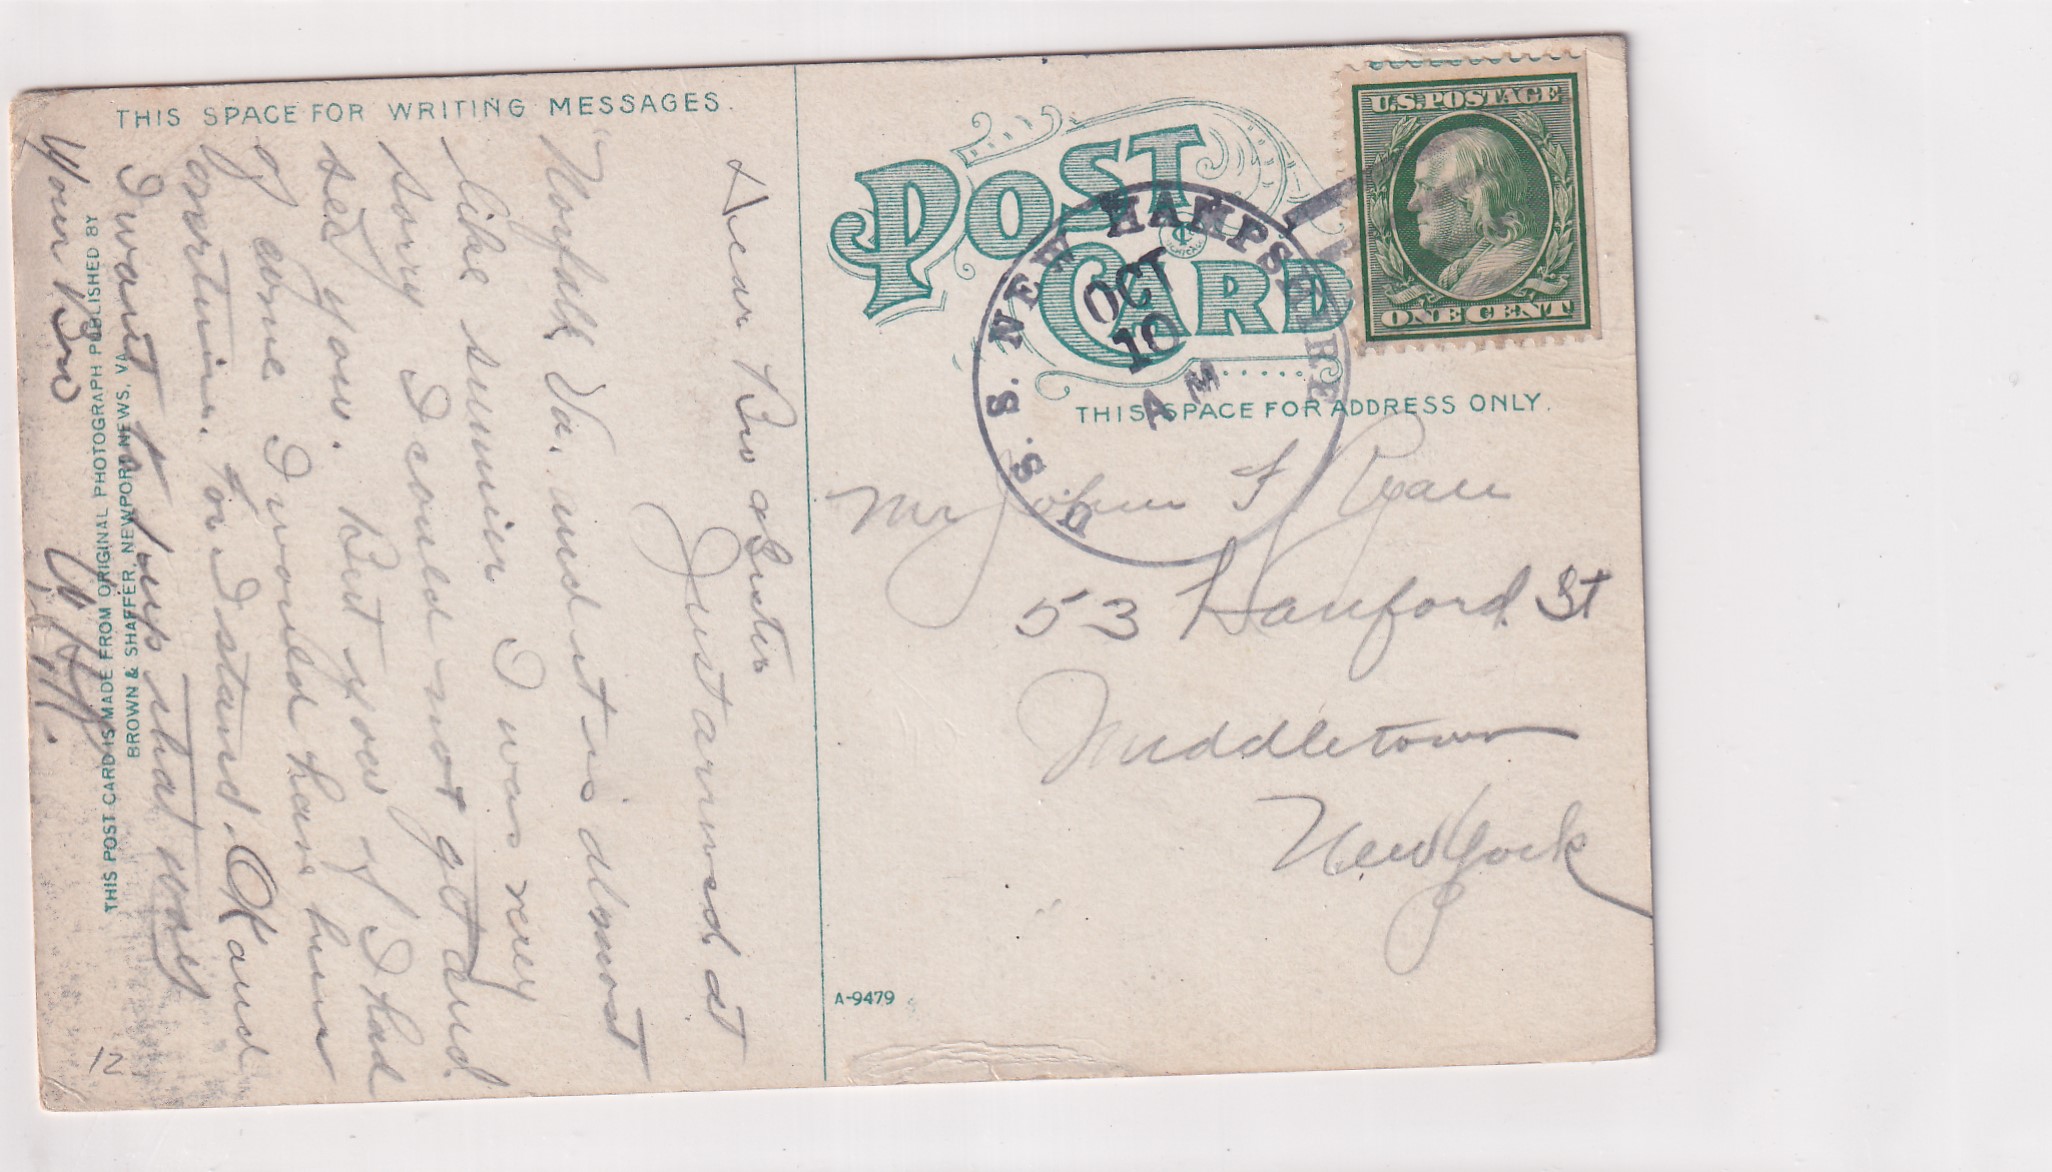 THIS SPACE FOR WRITING MESSAGES.
Dear Bro & Sister
Just arrived at
Norfolk Va. and it is almost
like summer I was very
sorry I could not get and
see you. But your of I had
of came I would have been
overtime. For I stand OK and
I want to keep that way
Your Bro
THIS POST CARD IS MADE FROM ORIGINAL PHOTOGRAPH PUBLISHED BY
BROWN & SHAFFER, NEWPORT NEWS, VA.
12
POST CARD
U.S. POSTAGE
ONE CENT
U.S.S. NEW HAMPSHIRE
OCT
10
AM
THIS SPACE FOR ADDRESS ONLY.
Mr John F Ryan
53 Hanford St
Middletown
New York
A-9479